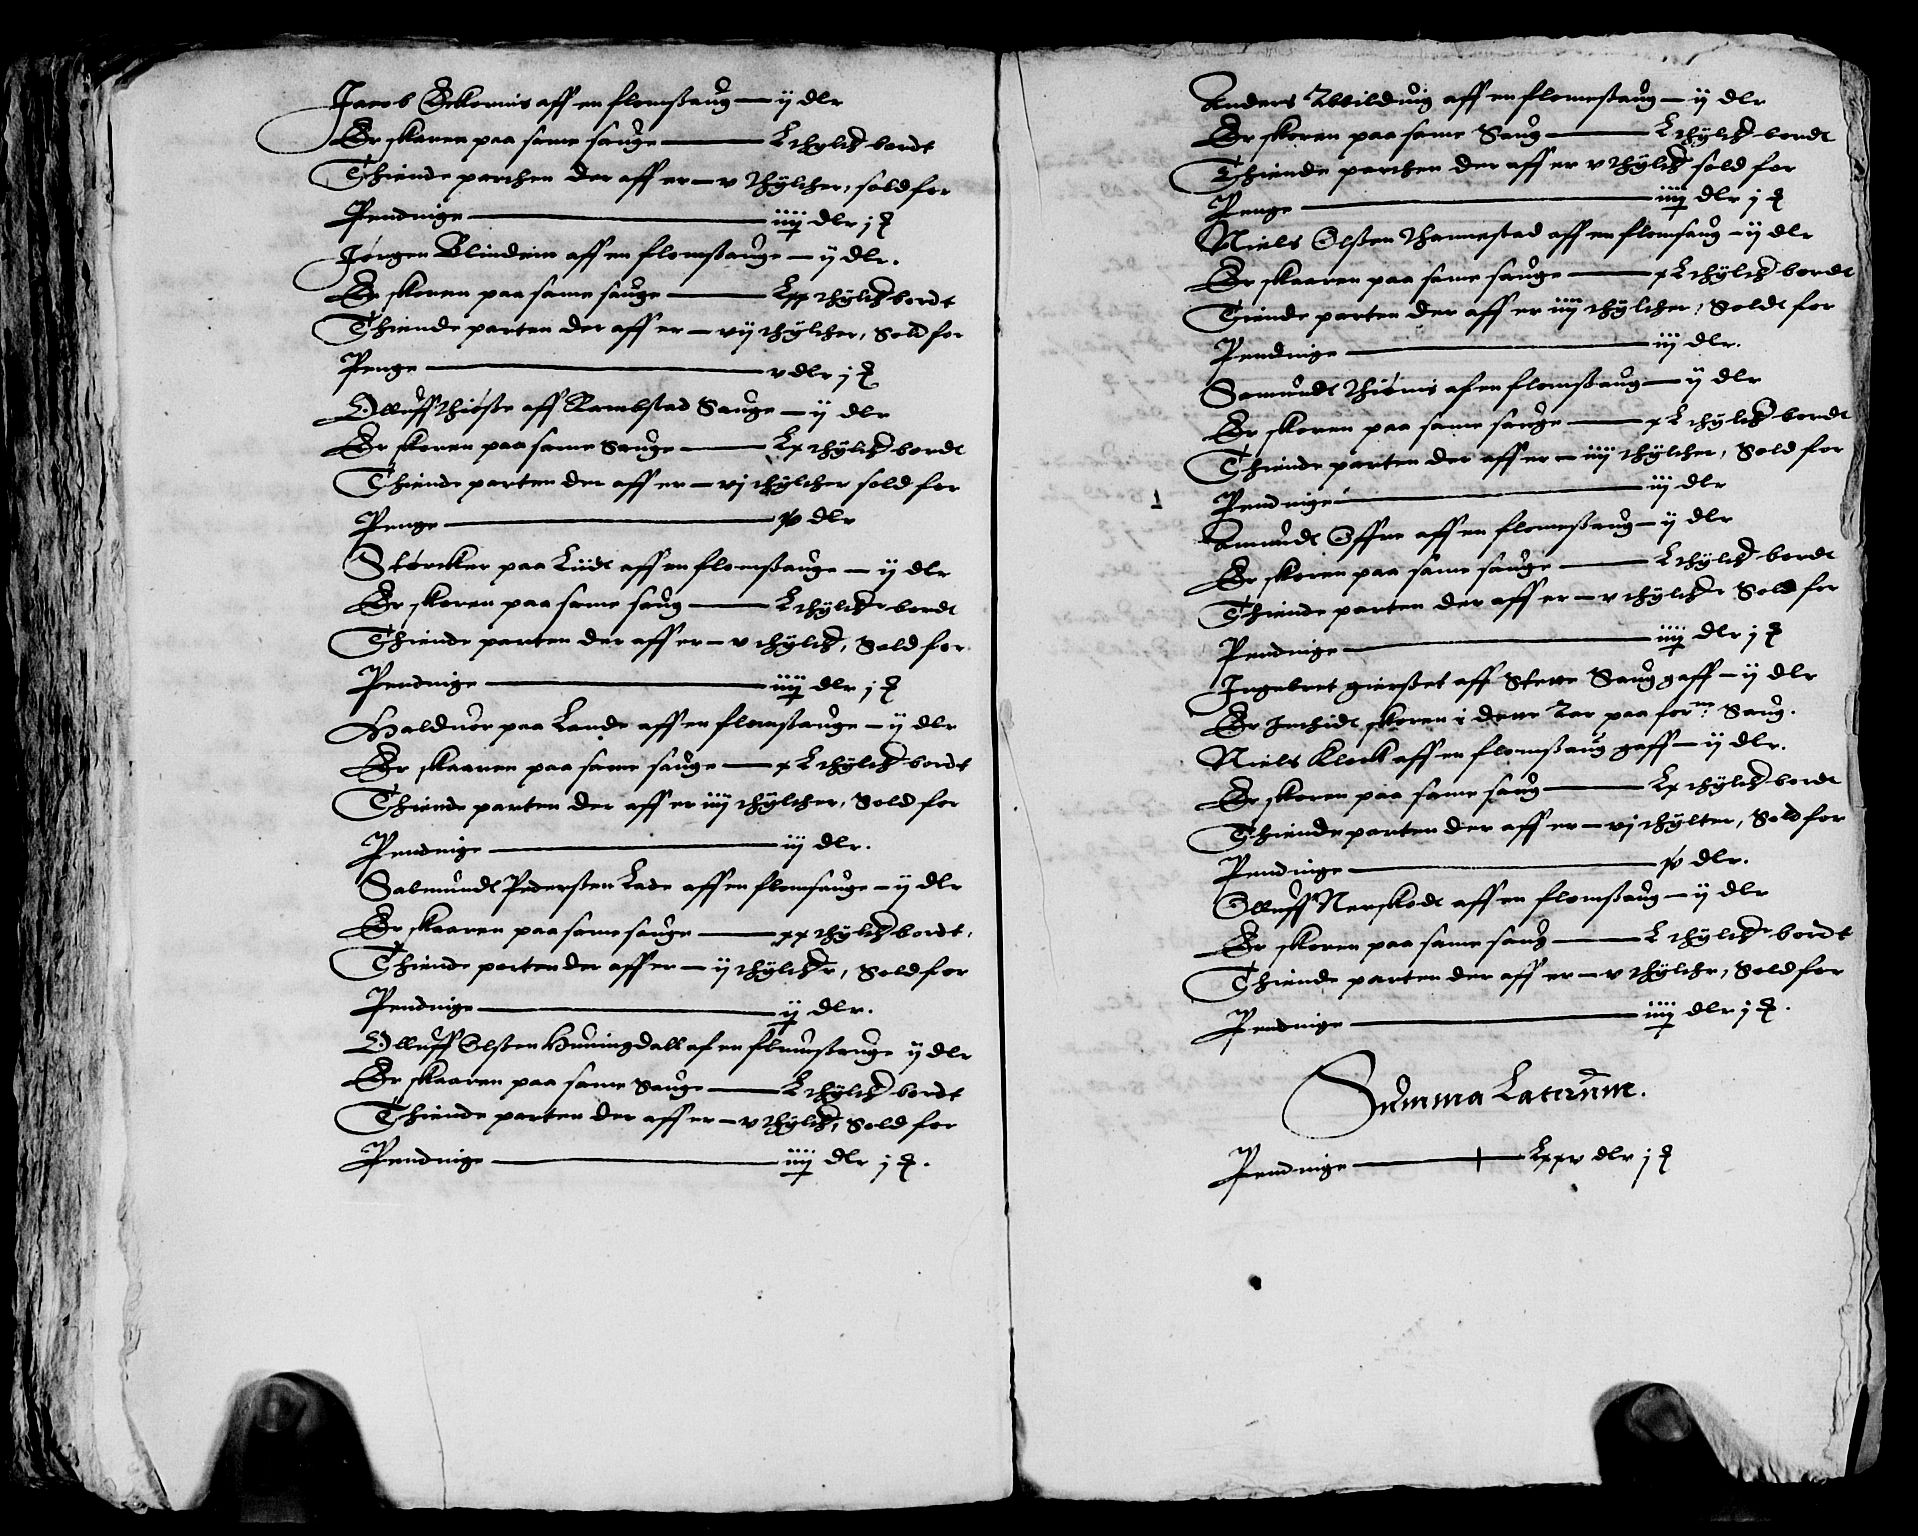 Jacob Eckornis aff en flomßaug — ij dlr
Er skaren paa same sauge — L thylch bordt
Thiende parthen der aff er — v thylther, sold for
Pendnige — iiij dlr j
Jörgen Blindeim aff en flomßauge — ij dlr.
Er skoren paa same sauge — Lxx thylch bordt
Thiende parten der aff er — vij thylther, Sold for
Penge — v dlr j
Olluff Thiöße aff Rambstad Sauge — ij dlr
Er skoren paa same Sauge — Lx thylch bordt
Thiende parten der aff er — vj thylther sold for
Penge — dlr
Störcker paa Liidt aff en flomßauge — ij dlr
Er skoren paa same saug — L thylch bordt
Thiende parten der aff er — v thylch, Sold for
Pendnige — iiij dlr j
Halduor paa Lande aff en flomßauge — ij dlr
Er skaaren paa same sauge — xL thylch bordt
Thiende parten der aff er iiij thylther, Sold for
Pendnige — iij dlr.
Salmundt Pederßen Lade aff en flomsauge — ij dlr
Er skaaren paa same sauge — xx thylch bordt,
Thiende parten der aff er — ij thylch, Sold for
Pendnige — ij dlr.
Olluff Olßen Huningdall af en flomßauge ij dlr
Er skaaren paa same Sauge — L thylch bordt
Thiende parten der aff er — v thylch, Sold for
Pendnige — iiij dlr j
Anders aff en flomeßaug — ij dlr
Er skoren paa same Saug — L thylch bordt
Thiende parthen der aff er v thylch sold for
Penge — iiij dlr j
Niels Olßen Thannestad aff en flomsaug — ij dlr
Er skaaren paa same sauge — xL thylch bordt
Tiende parten der aff er iiij thylther, Soldt for
Pendnige — iij dlr.
Samundt Thiömis af en flomßaug — ij dlr
Er skoren paa same sauge — xL thylch bordt
Thiende parten der aff er — iiij thylther, Sold for
Pendnige — iij dlr
Amundt Offne aff en flomeßaug — ij dlr
Er skoren paa same sauge — L thylch bordt
Thiende parten der aff er — v thylch Sold for
Pendnige — iiij dlr j
Ingebret gierßet aff Stette Saug gaff — ij dlr
Er Inthidt skoren i dette Aar paa forne: Saug.
Niels Klock aff en flomßaug gaff — ij dlr.
Er skoren paa same saug — Lx thylch bordt
Thiende parten der aff er — vj thylter, Sold for
Pendnige — dlr.
Olluff Nerskodt aff en flomßaug — ij dlr
Er skoren paa same saug — L thylch bordt
Thiende parten der aff er — v thylthr, Sold for
Pendnige — iiij dlr j
Summa Laterum.
Pendnige — Lxxv dlr j